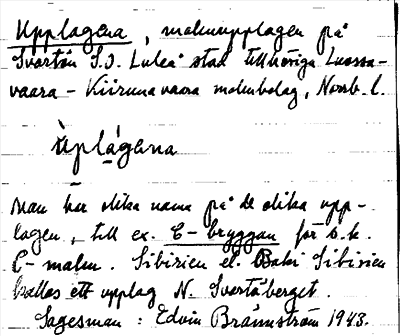 Upplagena, malmupplagen på
Svartön S.O. Luleå stad tillhöriga Luossa-
vaara - Kiirunavaara malmbolag, Norrb. l.
ùplágena
Man har olika namn på de olika upp-
lagen, till ex. C-bryggan för s.k.
C-malm. Sibirien el. Baki Sibirien
kallas ett upplag N. Svartöberget.
Sagesman: Edvin Brännström 1943.